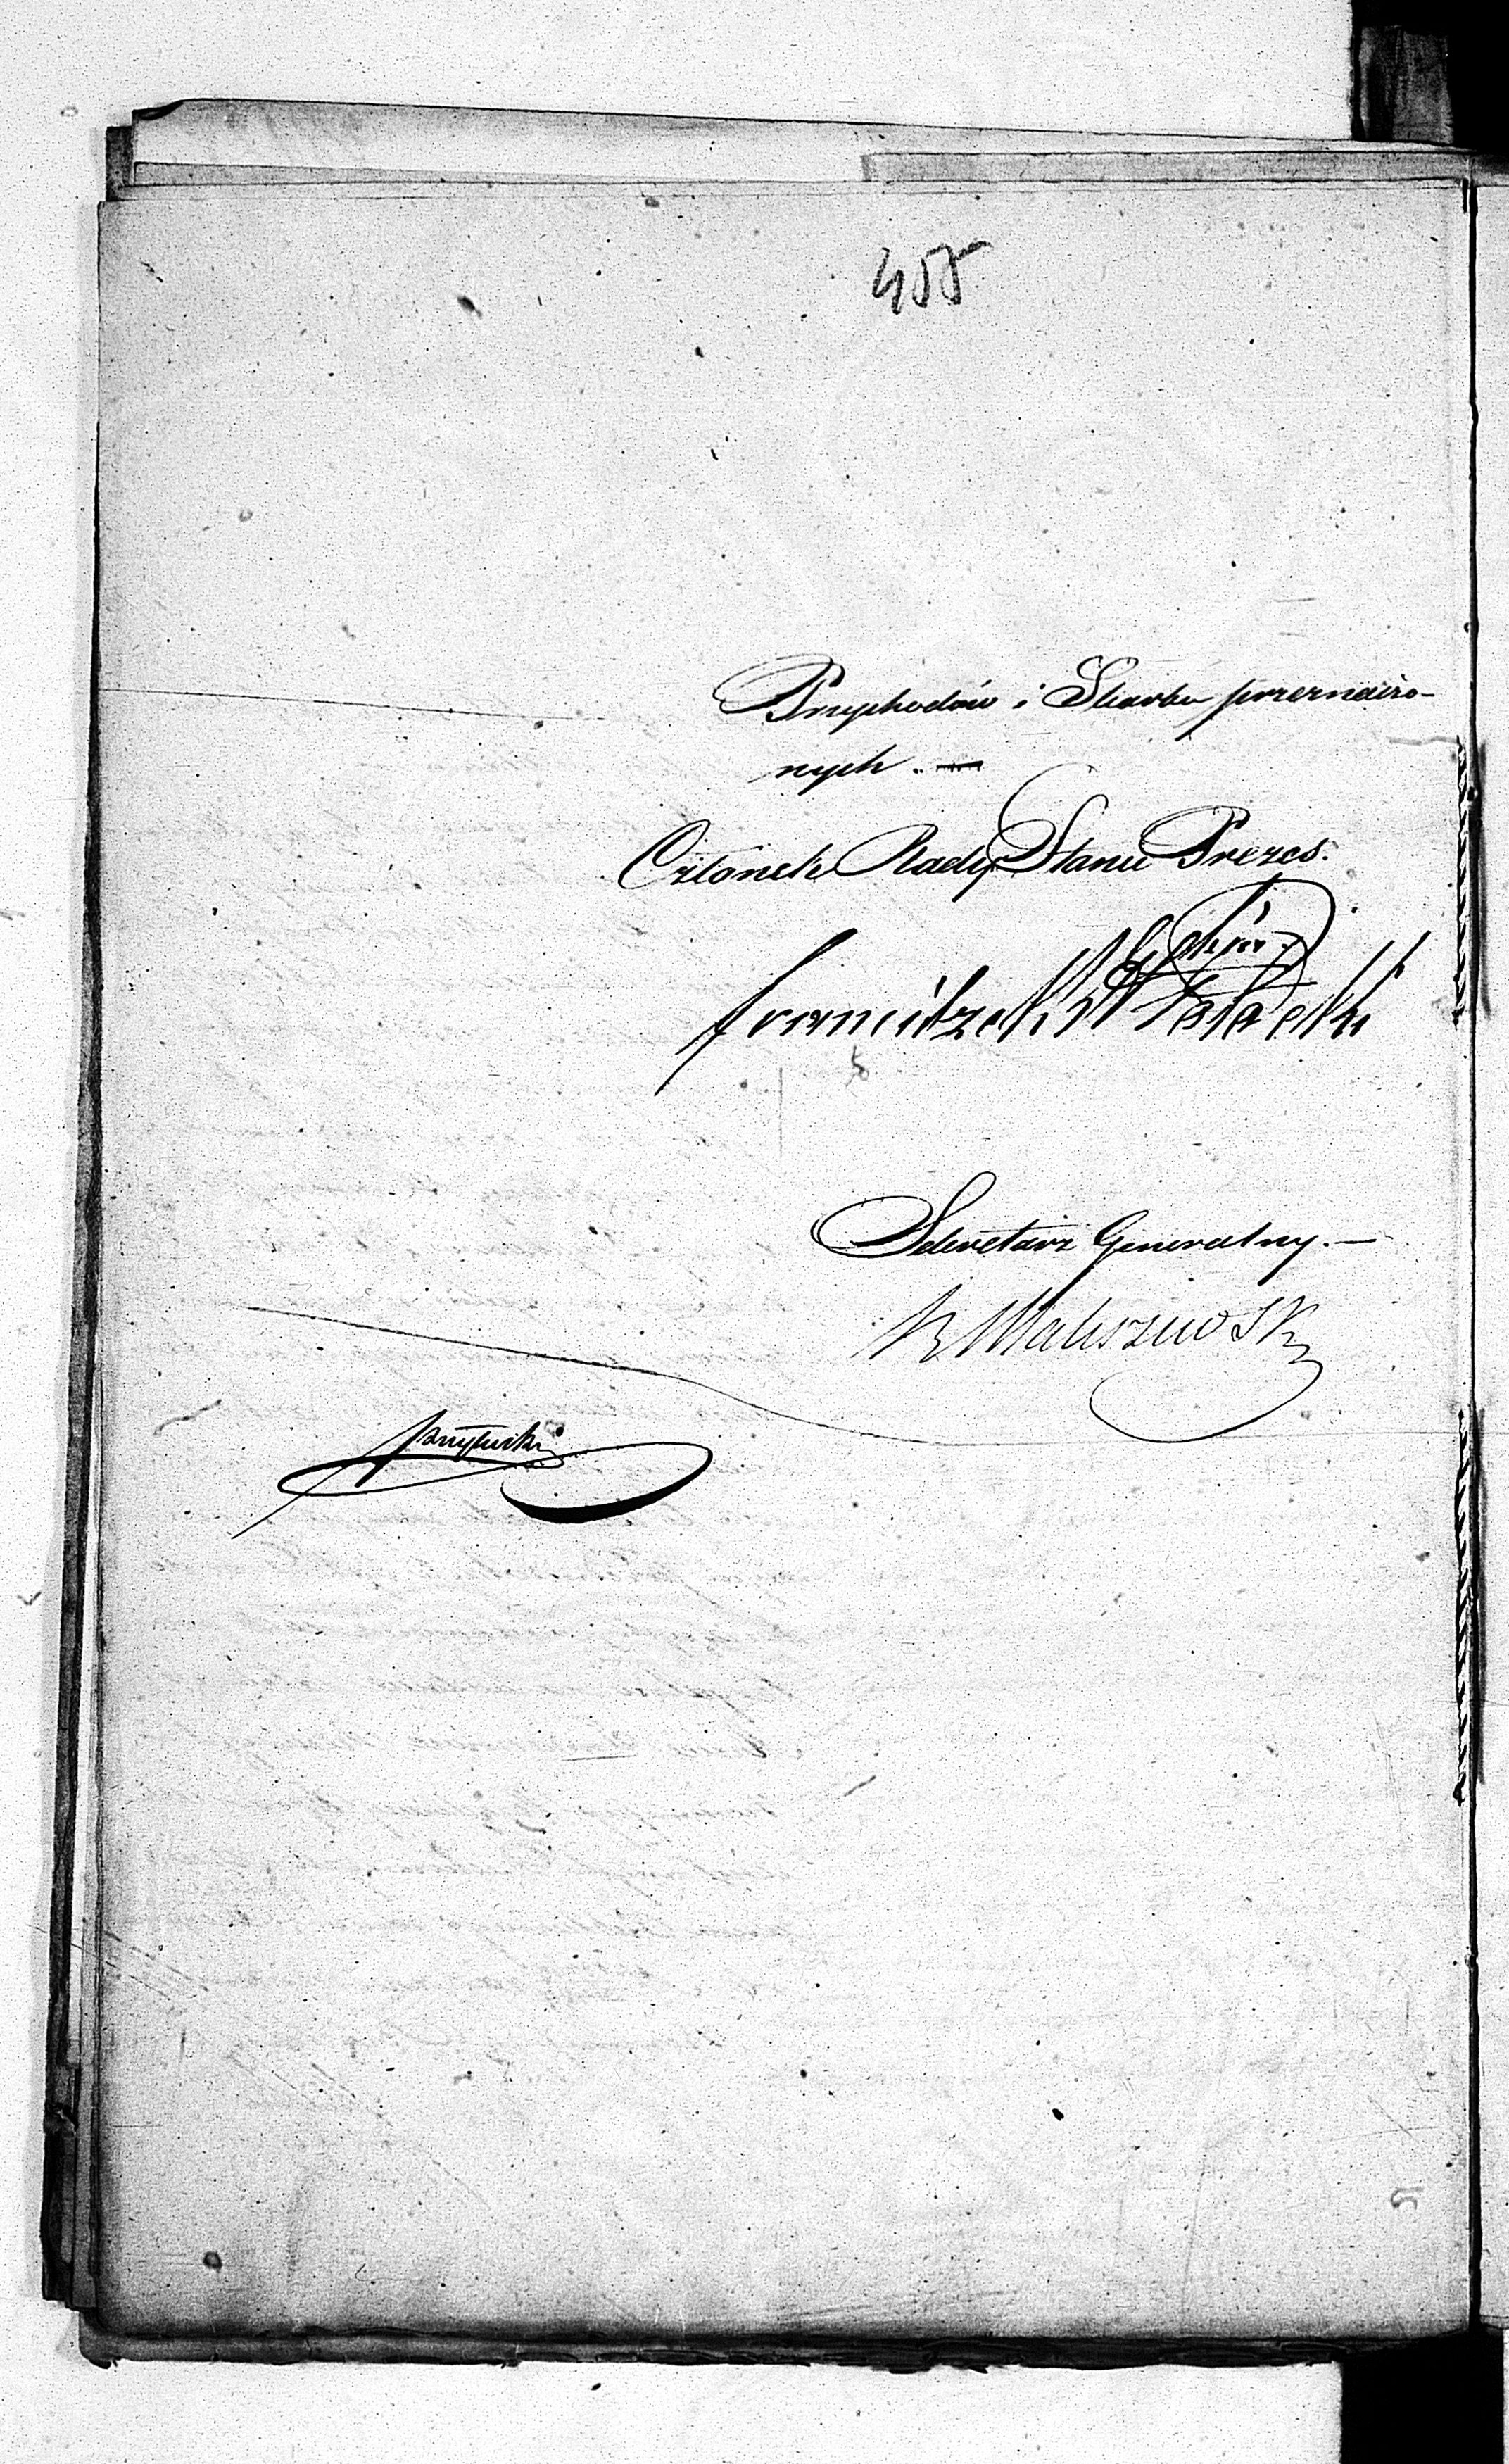 455
Przychodów i Skarbu przeznaczo-
nych. —
Członek Rady Stanu Prezes.
Franciszek
Sekretarz Generalny. —
K Maliszewski